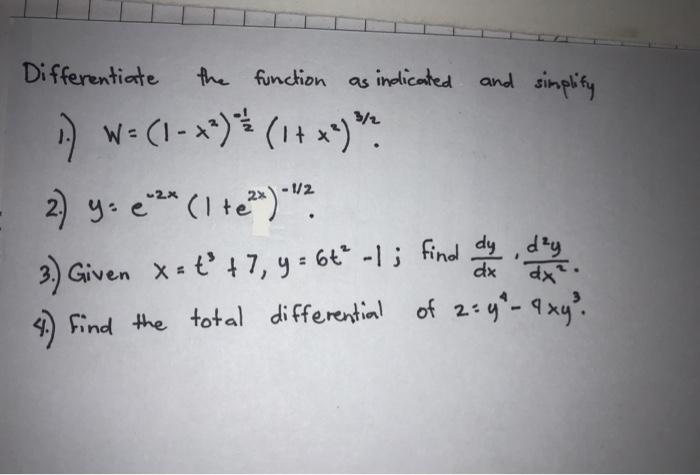 Differentiate the function as indicated and simplify
1.) W = (1 - x²)^-1/2 (1 + x²)^3/2.
2.) y = e^-2x (1 + e^2x)^-1/2.
3.) Given x = t³ + 7, y = 6t² - 1; find dy/dx, d²y/dx².
4.) Find the total differential of z = y⁴ - 9xy³.